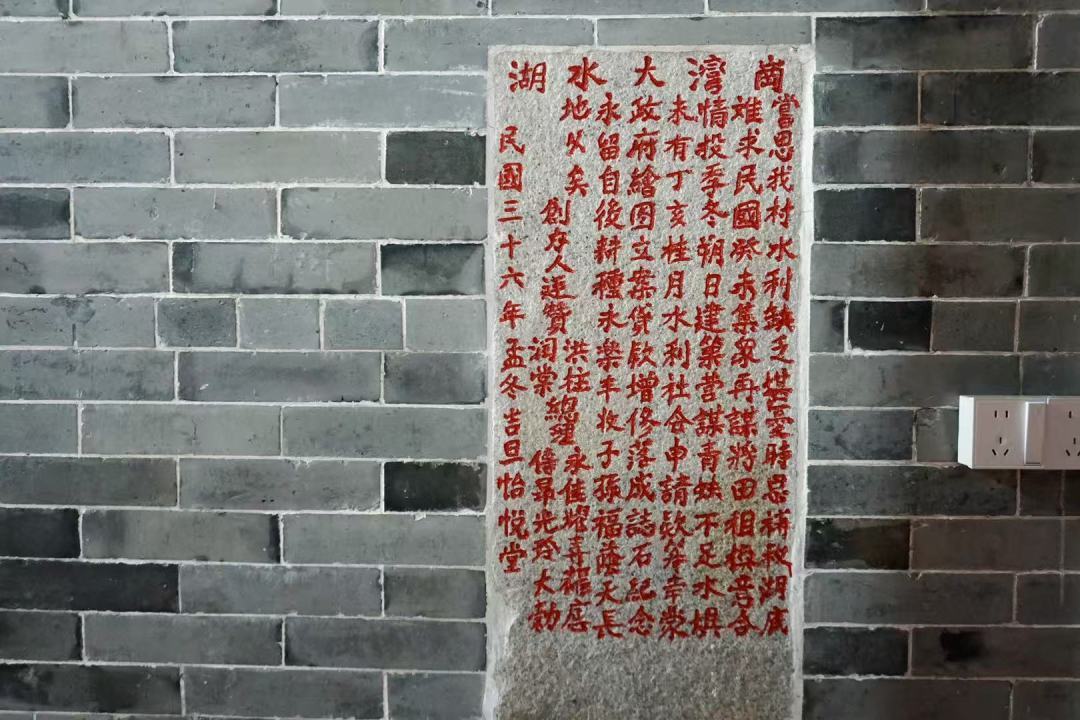 崗灣大水湖
當思我村水利缺乏堪憂時思補救湖底
难求民國癸未集眾再謀將田租捐音合
情投季冬朔日建築营謀青蚨不足水惧
未有丁亥桂月水利社会申請欵筆幸蒙
政府繪图立案貸欵增修落成誌石紀念
永留自後耕種永樂丰收子孫福蔭天長
地久矣
創办人連贊 洪柱 润棠 總理 永佳 耀喜 蘿恩 傳昴 光玲 大勳
民國三十六年孟冬吉旦怡悦堂